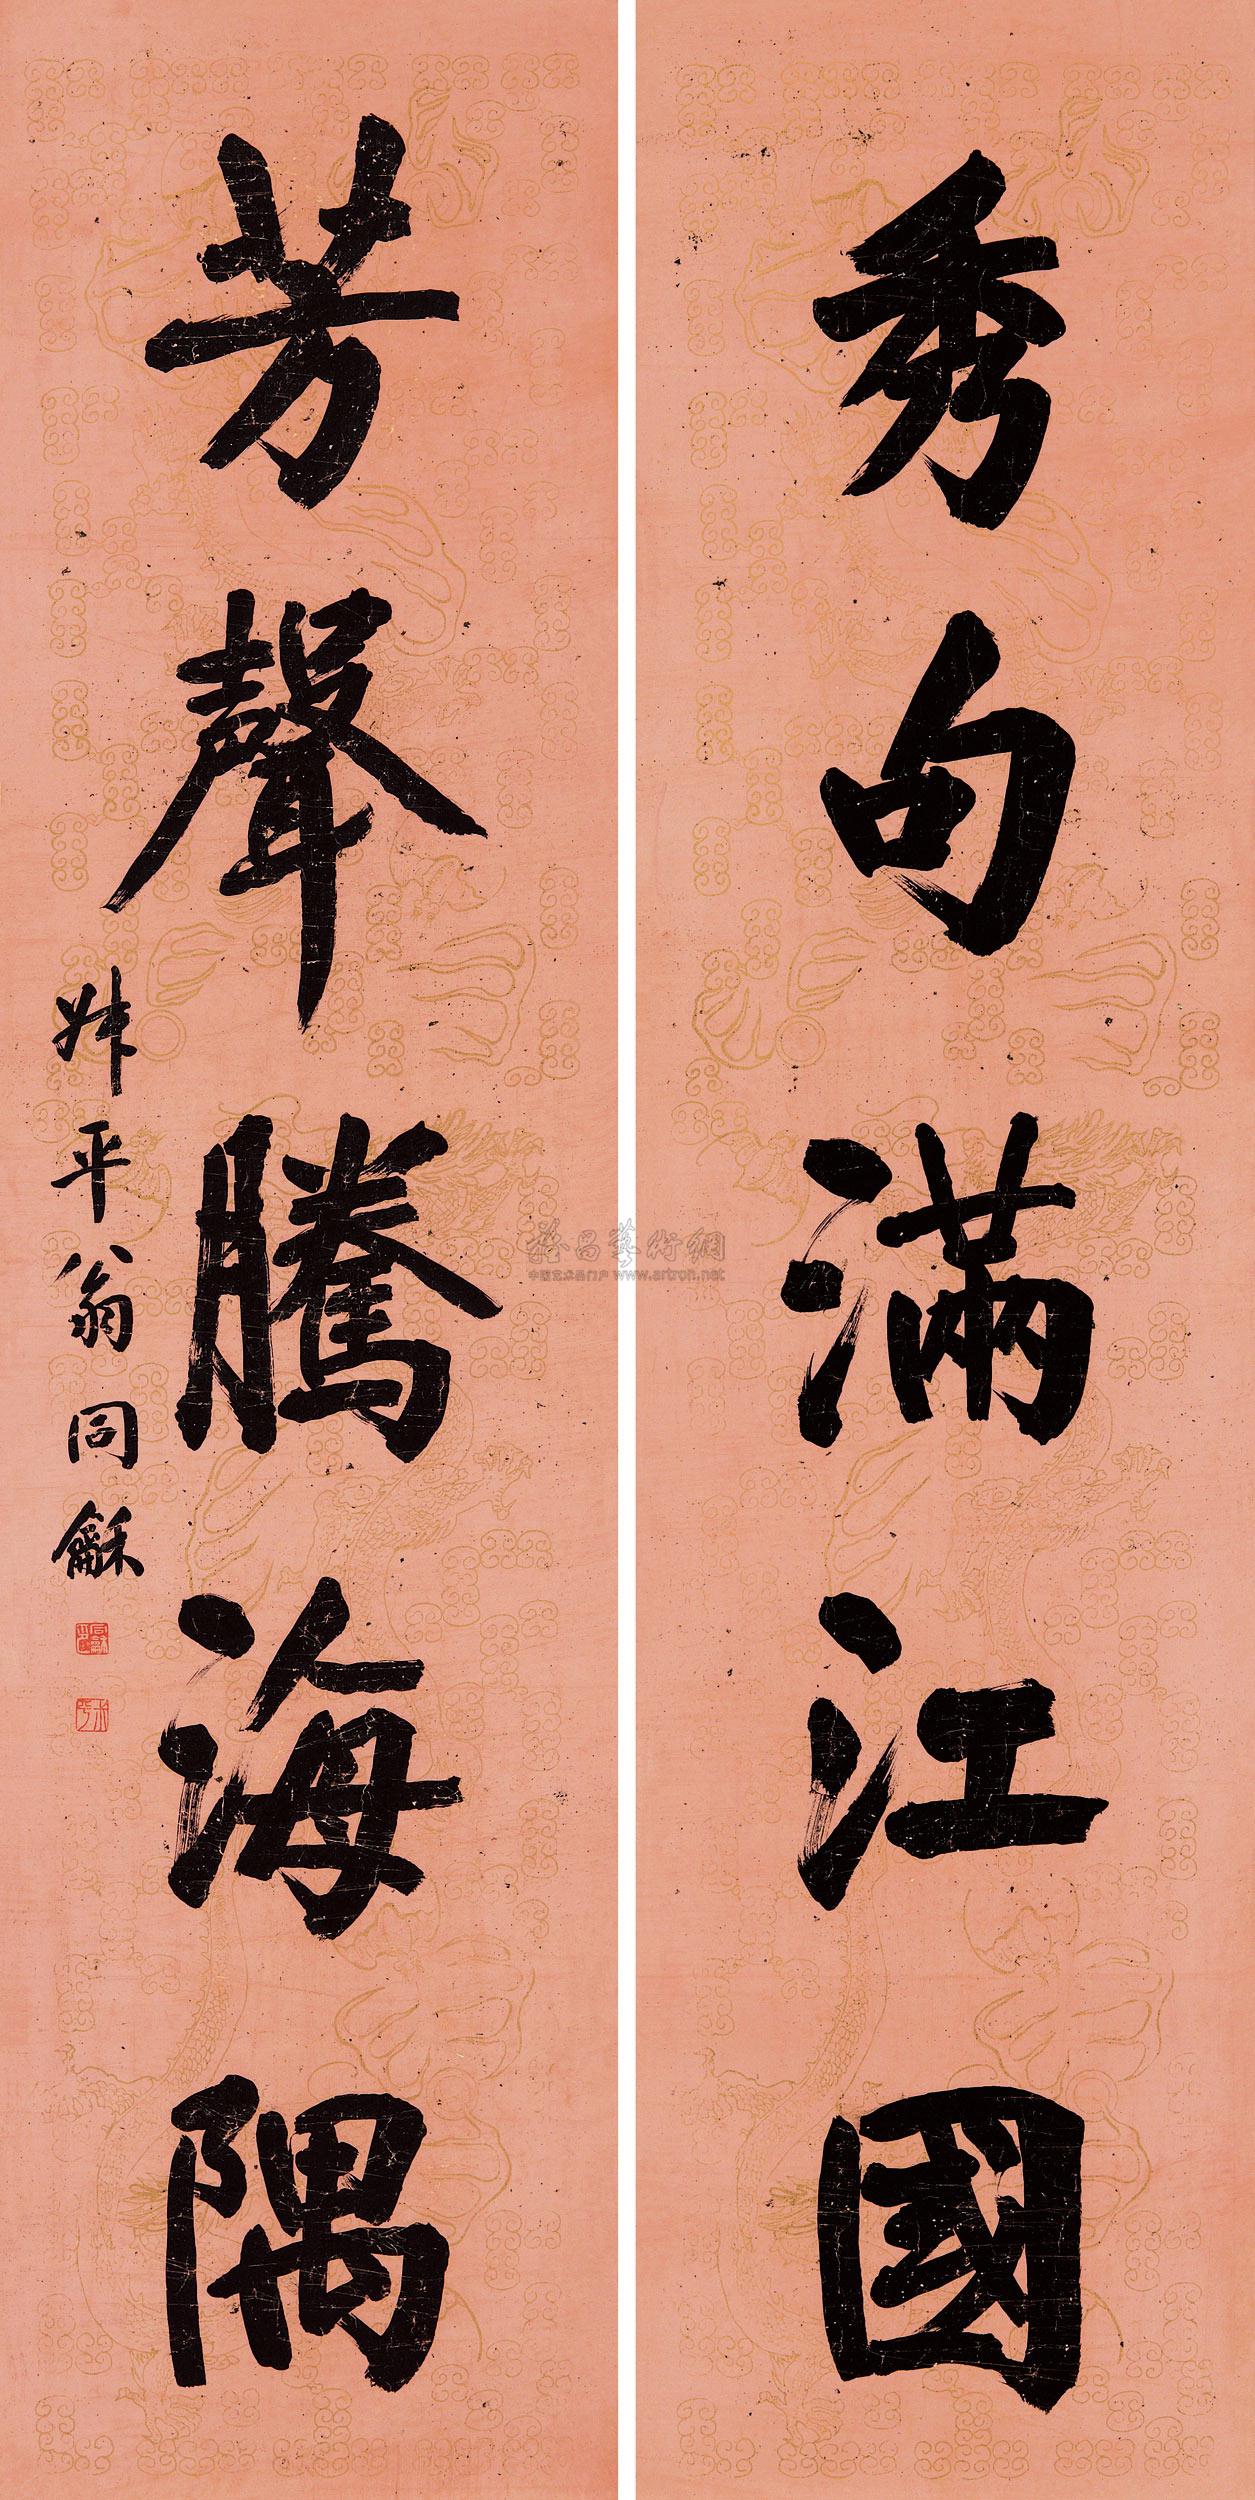 秀句滿江國
芳聲騰海隅
叔平翁同龢
雅昌藝術網
中国艺术品门户 www.artron.net